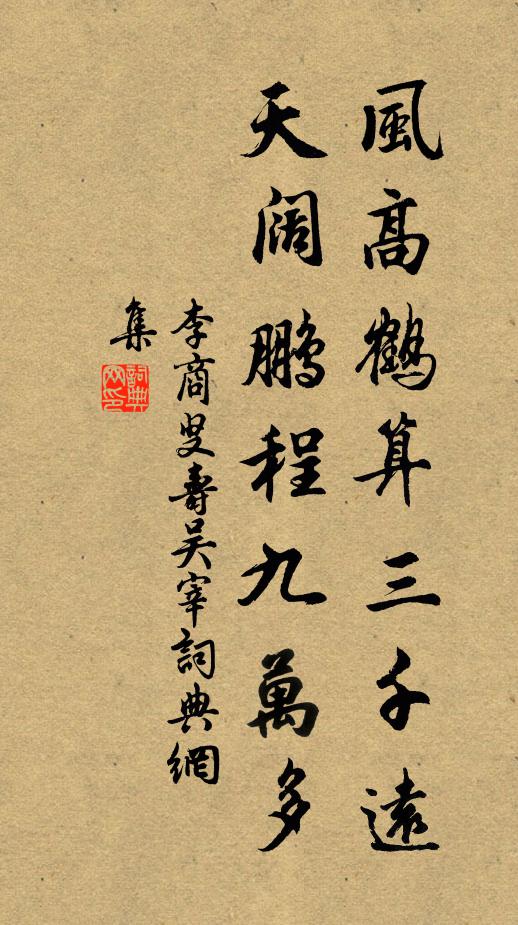 風高鶴算三千遠
天阔鵬程九萬多
李商叟壽吴宰詞典網
集
詞典
网印